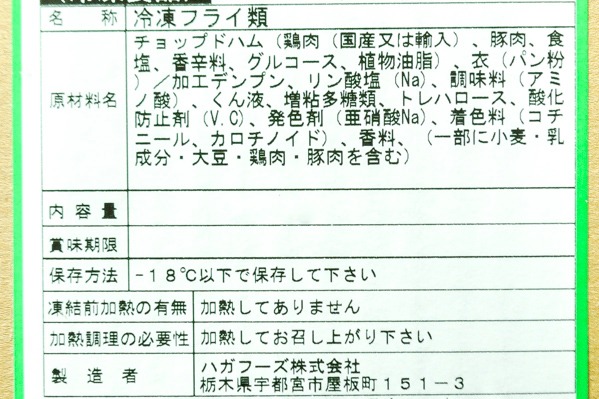 名称 冷凍フライ類
チョップドハム（鶏肉（国産又は輸入）、豚肉、食
塩、香辛料、グルコース、植物油脂）、衣（パン粉
）／加工デンプン、リン酸塩（Na）、調味料（アミ
原材料名 ノ酸）、くん液、増粘多糖類、トレハロース、酸化
防止剤（V.C）、発色剤（亜硝酸Na）、着色料（コチ
ニール、カロチノイド）、香料、（一部に小麦・乳
成分・大豆・鶏肉・豚肉を含む）
内容量
賞味期限
保存方法 -18℃以下で保存して下さい
凍結前加熱の有無 加熱してありません
加熱調理の必要性 加熱してお召し上がり下さい
製造者 ハガフーズ株式会社
栃木県宇都宮市屋板町151-3